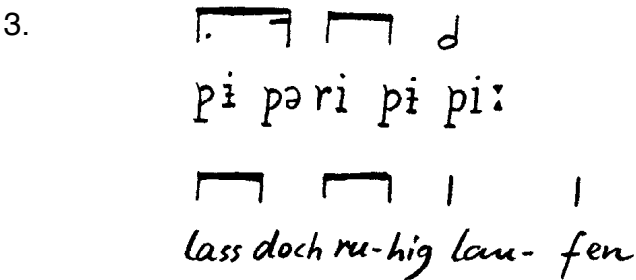 3.
pɨ pəri pɨ piː
lass doch ru-hig lau- fen